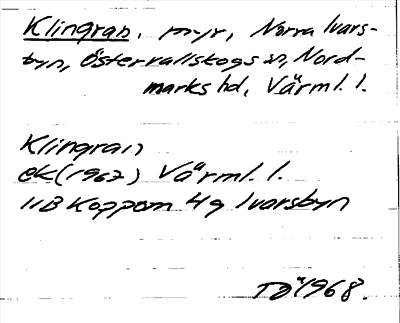 Klingran, myr, Norra Ivars-
byn, Östervallskogs sn, Nord-
marks hd, Värml. l.
Klingran
ek (1967) Värml. l.
11B Koppom 4g Ivarsbyn
TÖ 1968.